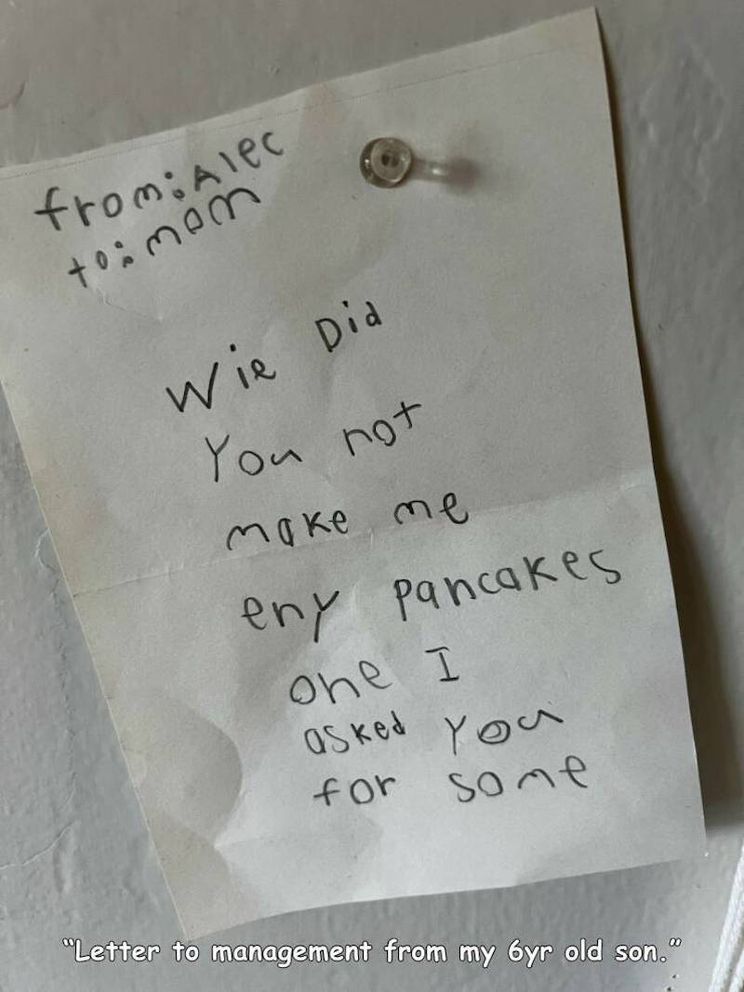 from: Alec
to: mom
Wie Did
You not
make me
eny pancakes
one I
asked you
for some
“Letter to management from my 6yr old son.”